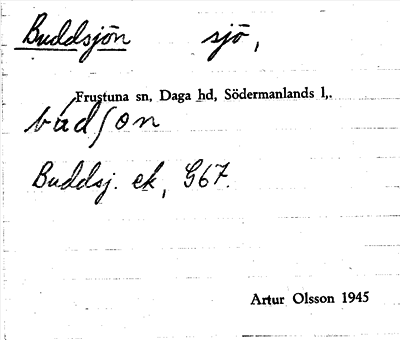 Buddsjön sjö,
Frustuna sn, Daga hd, Södermanlands l,.
Buddsj. ek, G67.
Artur Olsson 1945